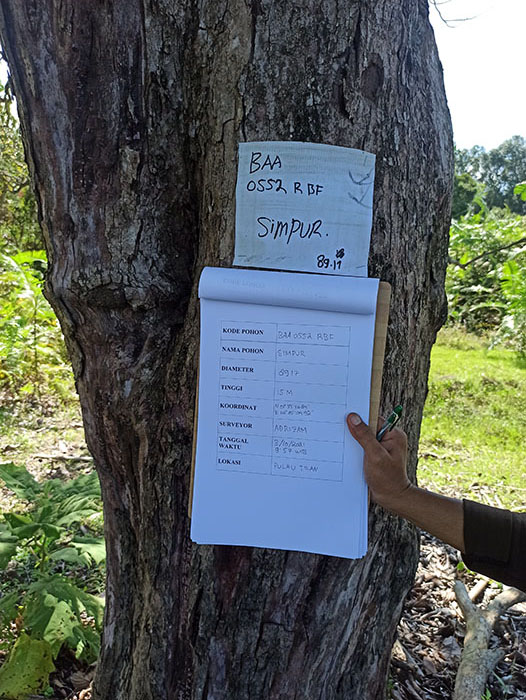 BAA
0552 RBF
SimpuR.
89.17
KODE POHON BAA 0552 RBF
NAMA POHON SIMPUR
DIAMETER 8917
TINGGI 15 M
KOORDINAT
SURVEYOR
TANGGAL
WAKTU
LOKASI PULAU